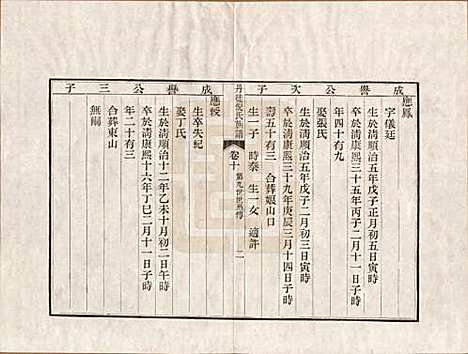 成譽公次子
應鳳
字儀廷
生於清順治五年戊子正月初五日寅時
卒於清康熙三十五年丙子二月十一日子時
年四十有九
娶張氏
生於清順治五年戊子二月初三日寅時
卒於清康熙三十九年庚辰三月十四日子時
壽五十有三 合葬娘山口
生一子 時泰 生一女 適許
卷十 第九世世系傳 二
成譽公三子
應綬
生卒失紀
娶丁氏
生於清順治十二年乙未十月初二日午時
卒於清康熙十六年丁巳二月十一日子時
年二十有三
合葬東山
無嗣